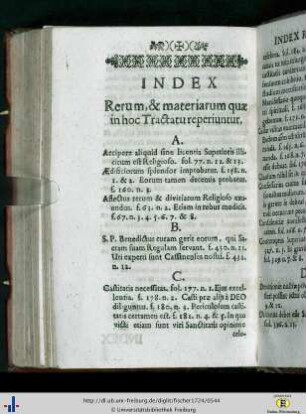 INDEX
Rerum, & materiarum quæ
in hoc Tractatu reperiuntur.
A.
Accipere aliquid sine licentia Superioris illi-
citum est Religioso. fol. 77. n. 12. & 13.
Ædificiorum splendor improbatur. f. 158. n.
1. & 2. Eorum tamen decentia probatur.
f. 160. n. 3.
Affectus rerum & divitiarum Religioso ca-
vendus. f. 63. n. 2. Etiam in rebus modicis.
f. 67. n. 3. 4. 5. 6. 7. & 8.
B.
S. P. Benedictus curam gerit eorum, qui Sa-
cram suam Regulam servant. f. 450. n. 11.
Uti experti sunt Cassinenses nostri. f. 452.
n. 12.
C.
Castitatis necessitas. fol. 177. n. 1. Ejus excel-
lentia. f. 178. n. 2. Casti præ aliis à DEO
diliguntur. f. 180. n. 3. Periculosum casti-
tatis certamen est. f. 181. n. 4. & 5. In quo
victi etiam sunt viri Sanctitatis opinione
cele-
INDEX R
http://dl.ub.uni-freiburg.de/diglit/fischer1724/0544
© Universitätsbibliothek Freiburg